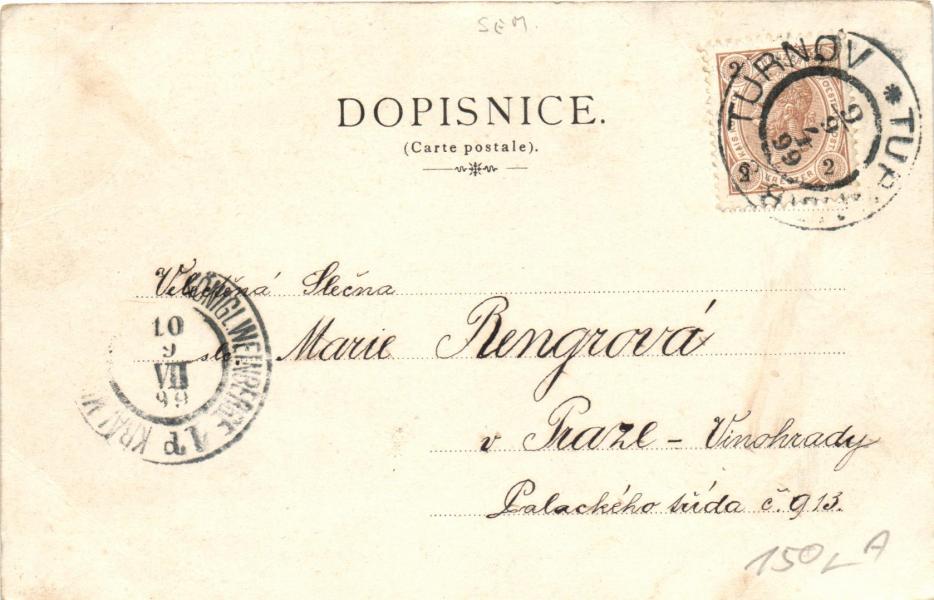 SEM.
DOPISNICE.
(Carte postale).
TURNOV * TUR
9
6
99
2
2
2
Velectěná Slečna
KÖNIGL. WEINBERGE 1 KRÁL. VI
10
9
VII
99
sl. Marie Rengrová
v Praze – Vinohrady
Palackého třída č. 913.
150 L A